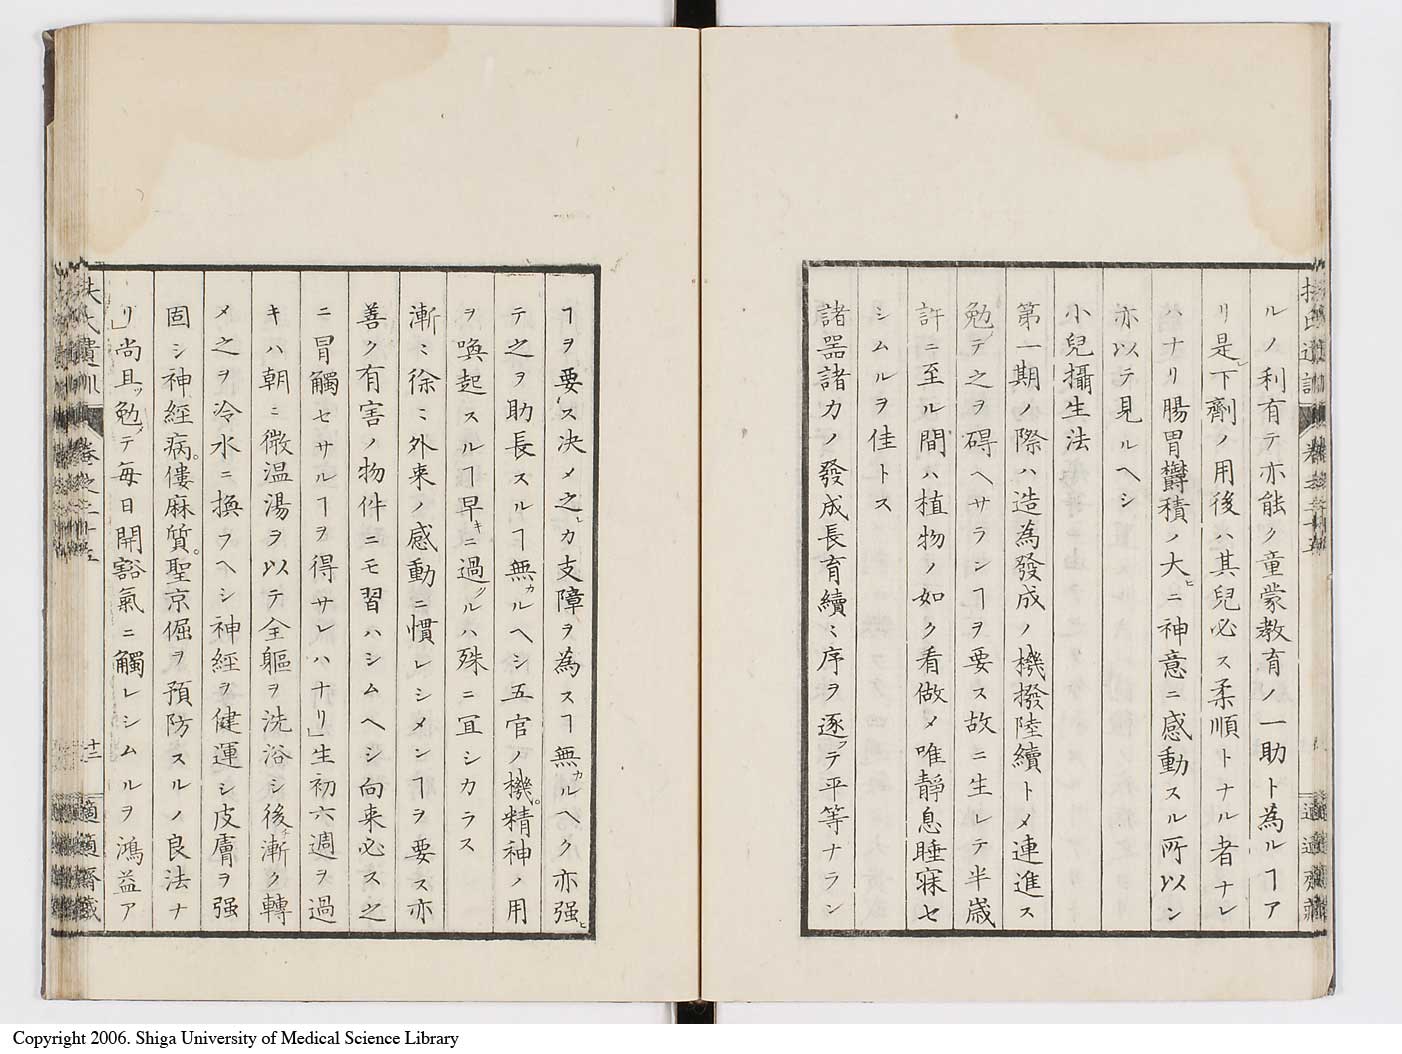 ルノ利有テ亦能ク童蒙教育ノ一助ト為ルヿア
リ是レ下劑ノ用後ハ其兒必ス柔順トナル者ナレ
ハナリ腸胃欝積ノ大ヒニ神意ニ感動スル所以ン
亦以テ見ルヘシ
小兒攝生法
第一期ノ際ハ造為發成ノ機撥陸續トメ連進ス
勉テ之ヲ碍ヘサランヿヲ要ス故ニ生レテ半歳
許ニ至ル間ハ植物ノ如ク看做メ唯靜息睡寐セ
シムルヲ佳トス
諸器諸力ノ發成長育續ミ序ヲ逐ツテ平等ナラン
ヿヲ要ス决メ之レカ支障ヲ為スヿ無カルヘク亦强ヒ
テ之ヲ助長スルヿ無カルヘシ五官ノ機。精神ノ用
ヲ喚起スルヿ早キニ過クルハ殊ニ冝シカラス
漸ミ徐ミ外来ノ感動ニ慣レシメンヿヲ要ス亦
善ク有害ノ物件ニモ習ハシムヘシ向来必ス之
ニ冒觸セサルヿヲ得サレハナリ」生初六週ヲ過
キハ朝ニ微温湯ヲ以テ全軀ヲ洗浴シ後チ漸ク轉
メ之ヲ冷水ニ換フヘシ神經ヲ健運シ皮膚ヲ强
固シ神經病。僂麻質。聖京倔ヲ預防スルノ良法ナ
リ」尚且ツ勉テ毎日開豁氣ニ觸レシムルヲ鴻益ア
扶氏遺訓 卷之二十五
十二
適適齋藏
Copyright 2006. Shiga University of Medical Science Library